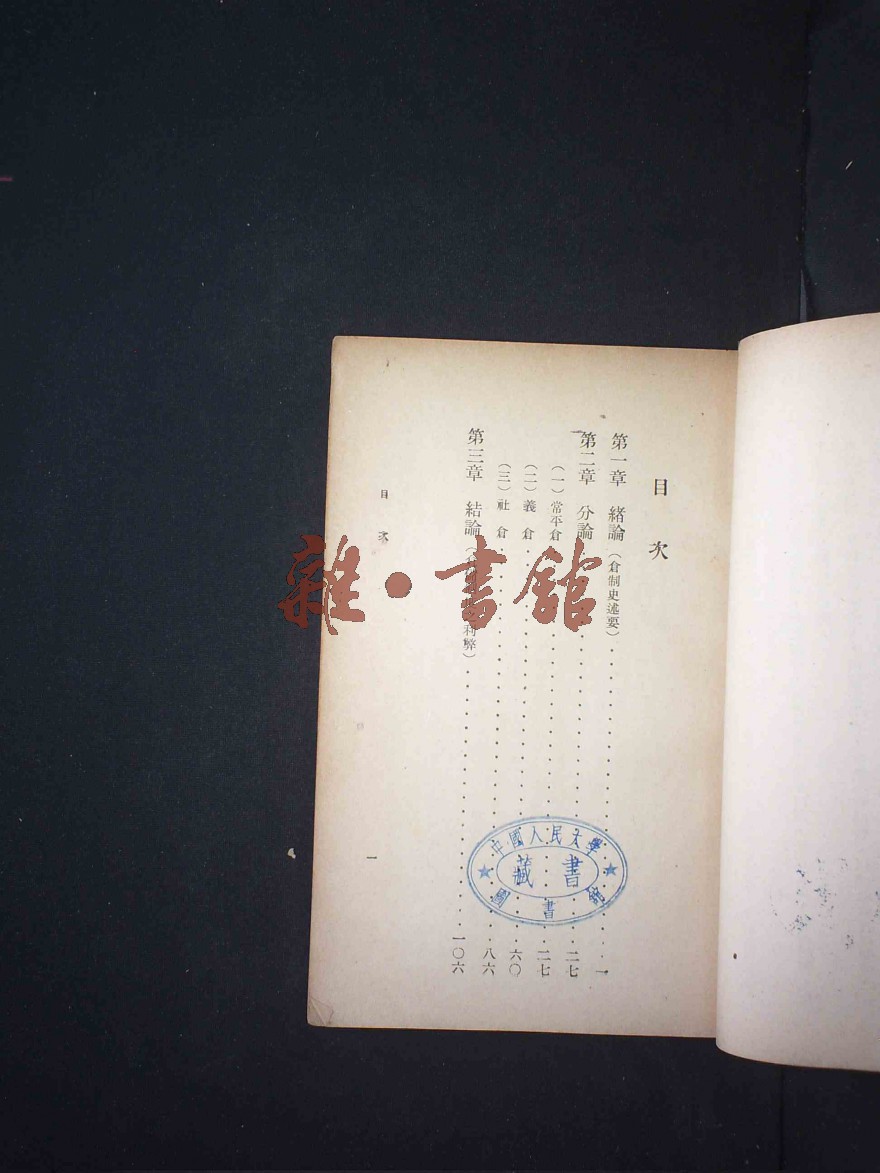 目次
第一章 緒論（倉制史述要）··········一
第二章 分論··········二七
（一）常平倉··········二七
（二）義倉··········六〇
（三）社倉··········八六
第三章 結論（利弊）··········一〇六
目次
一
中國人民大學
藏書
圖書館
雜·書館